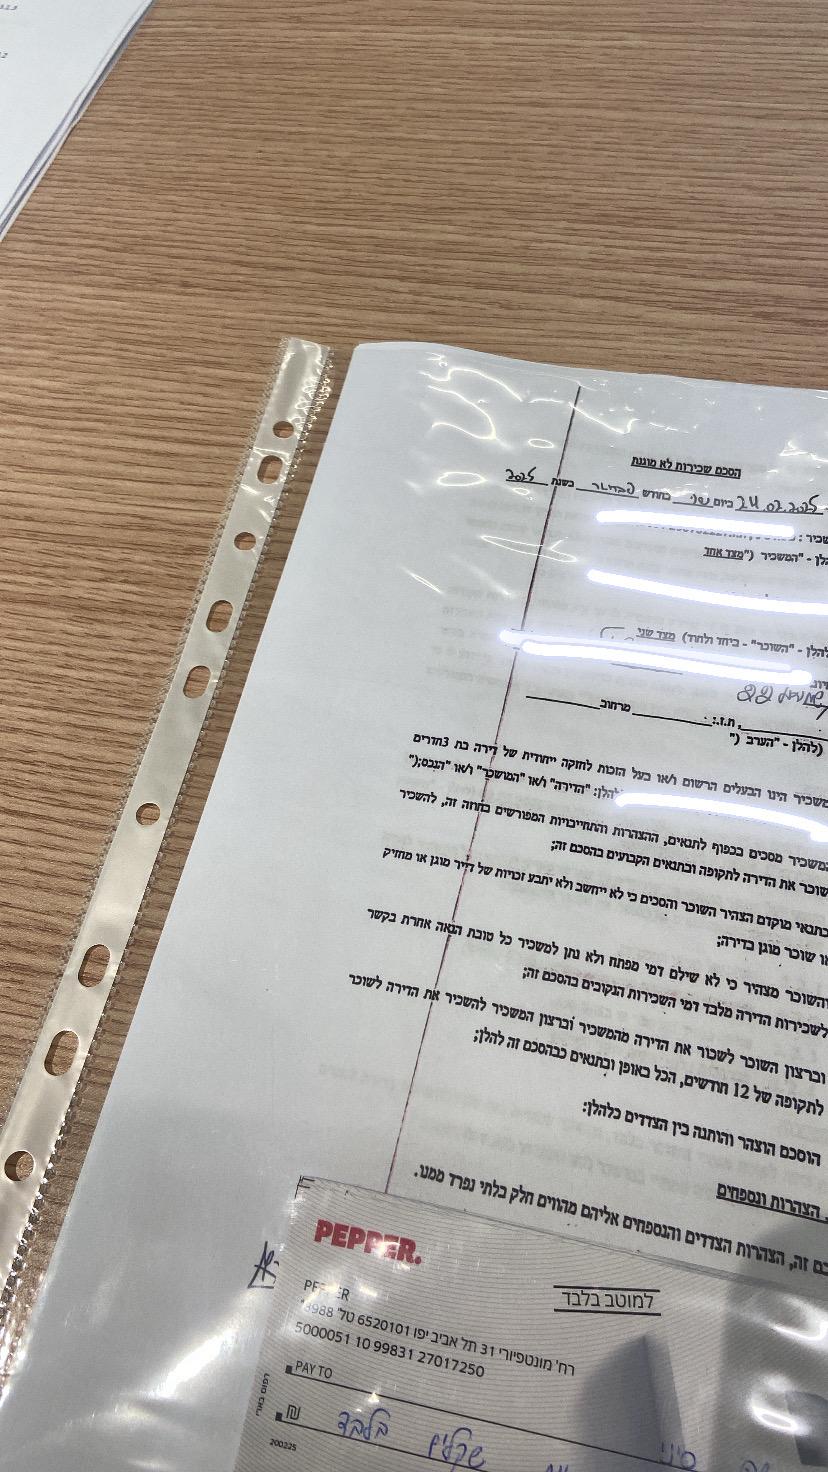 הסכם שכירות לא מוגנת
24.02.2025 ביום שני בחודש פברואר בשנת 2025
"המשכיר") מצד אחד
להלן - "השוכר" - ביחד ולחוד) מצד שני
22
ת.ז.: מרחוב
(להלן - "הערב")
משכיר הינו הבעלים הרשום ו/או בעל הזכות לחזקה ייחודית של דירה בת 3חדרים
להלן: "הדירה" ו/או "המושכר" ו/או "הנכס");
המשכיר מסכים בכפוף לתנאים, ההצהרות והתחייבויות המפורשים בחוזה זה, להשכיר
שוכר את הדירה לתקופה ובתנאים הקבועים בהסכם זה;
בתנאי מוקדם הצהיר השוכר והסכים כי לא ייחשב ולא יתבע זכויות של דייר מוגן או מחזיק
או שוכר מוגן בדירה;
והשוכר מצהיר כי לא שילם דמי מפתח ולא נתן למשכיר כל טובת הנאה אחרת בקשר
לשכירות הדירה מלבד דמי השכירות הנקובים בהסכם זה;
וברצון השוכר לשכור את הדירה מהמשכיר וברצון המשכיר להשכיר את הדירה לשוכר
לתקופה של 12 חודשים, הכל באופן ובתנאים כבהסכם זה להלן;
הוסכם הוצהר והותנה בין הצדדים כלהלן:
הצהרות ונספחים
זה, הצהרות הצדדים והנספחים אליהם מהווים חלק בלתי נפרד ממנו.
PEPPER.
PEPPER
למוטב בלבד
רח' מונטפיורי 31 תל אביב יפו 6520101 טל' *3988
5000051 10 99831 27017250
PAY TO
₪ שקלים בלבד
דפוס בארי
200225